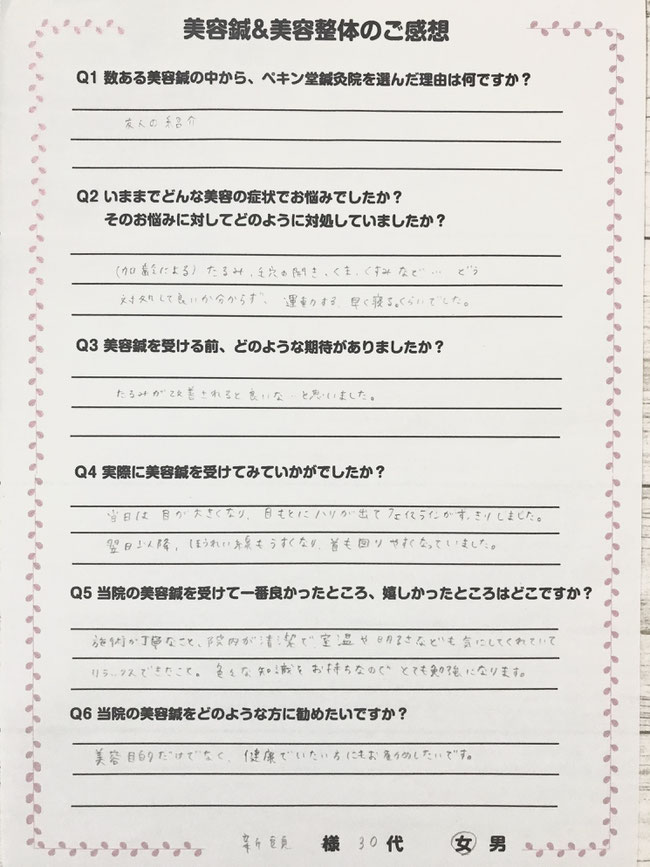 美容鍼&美容整体のご感想
Q1 数ある美容鍼の中から、ペキン堂鍼灸院を選んだ理由は何ですか？
友人の紹介
Q2 いままでどんな美容の症状でお悩みでしたか？
そのお悩みに対してどのように対処していましたか？
(加齢による) たるみ、毛穴の開き、くま、くすみなど… どう
対処して良いか分からず、運動する、早く寝る。くらいでした。
Q3 美容鍼を受ける前、どのような期待がありましたか？
たるみが改善されると良いな…と思いました。
Q4 実際に美容鍼を受けてみていかがでしたか？
当日は目が大きくなり、目もとにハリが出てフェイスラインがすっきりしました。
翌日以降、ほうれい線もうすくなり、首も回りやすくなっていました。
Q5 当院の美容鍼を受けて一番良かったところ、嬉しかったところはどこですか？
施術が丁寧なこと、院内が清潔で、室温や明るさなども気にしてくれていて
リラックスできたこと。色々な知識をお持ちなのでとても勉強になります。
Q6 当院の美容鍼をどのような方に勧めたいですか？
美容目的だけでなく、健康でいたい方にもお勧めしたいです。
様 30代 女 男